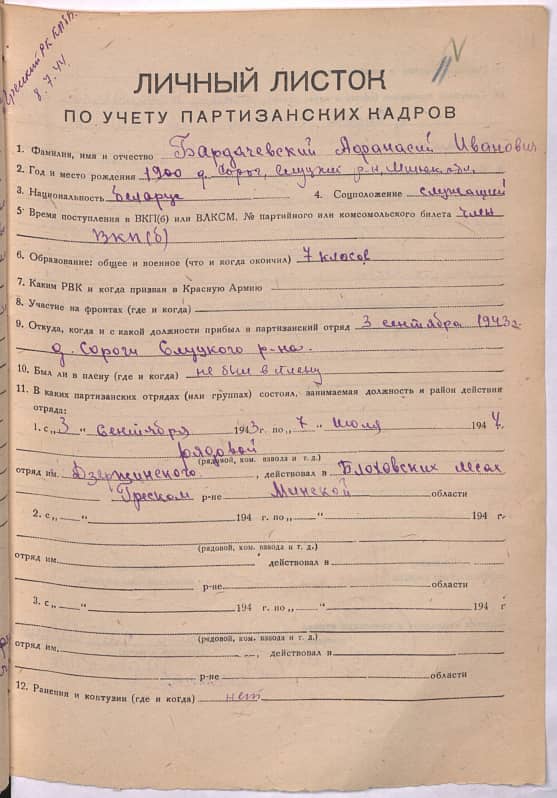 Гресский РК КП(б)Б
8.7.44
ЛИЧНЫЙ ЛИСТОК
ПО УЧЕТУ ПАРТИЗАНСКИХ КАДРОВ
1. Фамилия, имя и отчество Бардачевский Афанасий Иванович
2. Год и место рождения 1900 д. Сорог, Слуцкий р-н, Минской
3. Национальность беларус 4. Соцположение служащий
5. Время поступления в ВКП(б) или ВЛКСМ, № партийного или комсомольского билета член
ВКП(б)
6. Образование: общее и военное (что и когда окончил) 7 класов
7. Каким РВК и когда призван в Красную Армию
8. Участие на фронтах (где и когда)
9. Откуда, когда и с какой должности прибыл в партизанский отряд 3 сентября 1943 г.
д. Сороги Слуцкого р-на.
10. Был ли в плену (где и когда) не был в плену
11. В каких партизанских отрядах (или группах) состоял, занимаемая должность и район действия
отряда:
1. с „3" сентября 1943 г. по „7" июля 1944
рядовой
(рядовой, ком. взвода и т. д.)
отряд им. Дзержинского, действовал в Блоховских лесах
Греском р-не Минской области
2. с „ " 194 г. по „ " 194 г.
(рядовой, ком. взвода и т. д.)
отряд им. действовал в
р-не области
3. с „ " 194 г. по „ " 194 г
(рядовой, ком. взвода и т. д.)
отряд им. , действовал в
р-не области
12. Ранения и контузии (где и когда) нет